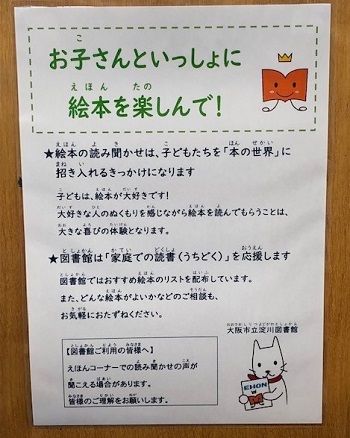 お子さんといっしょに
絵本を楽しんで!
★絵本の読み聞かせは、子どもたちを「本の世界」に
招き入れるきっかけになります
子どもは、絵本が大好きです!
大好きな人のぬくもりを感じながら絵本を読んでもらうことは、
大きな喜びの体験となります。
★図書館は「家庭での読書(うちどく)」を応援します
図書館ではおすすめ絵本のリストを配布しています。
また、どんな絵本がよいかなどのご相談も、
お気軽におたずねください。
大阪市立淀川図書館
【図書館ご利用の皆様へ】
えほんコーナーでの読み聞かせの声が
聞こえる場合があります。
皆様のご理解をお願いします。
EHON